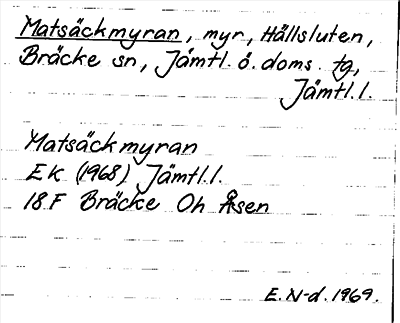 Matsäckmyran, myr, Hällsluten,
Bräcke sn, Jämtl. ö. doms. tg,
Jämtl. l.
Matsäckmyran
EK (1968) Jämtl. l.
18 F Bräcke Oh Åsen
E. N-d. 1969.